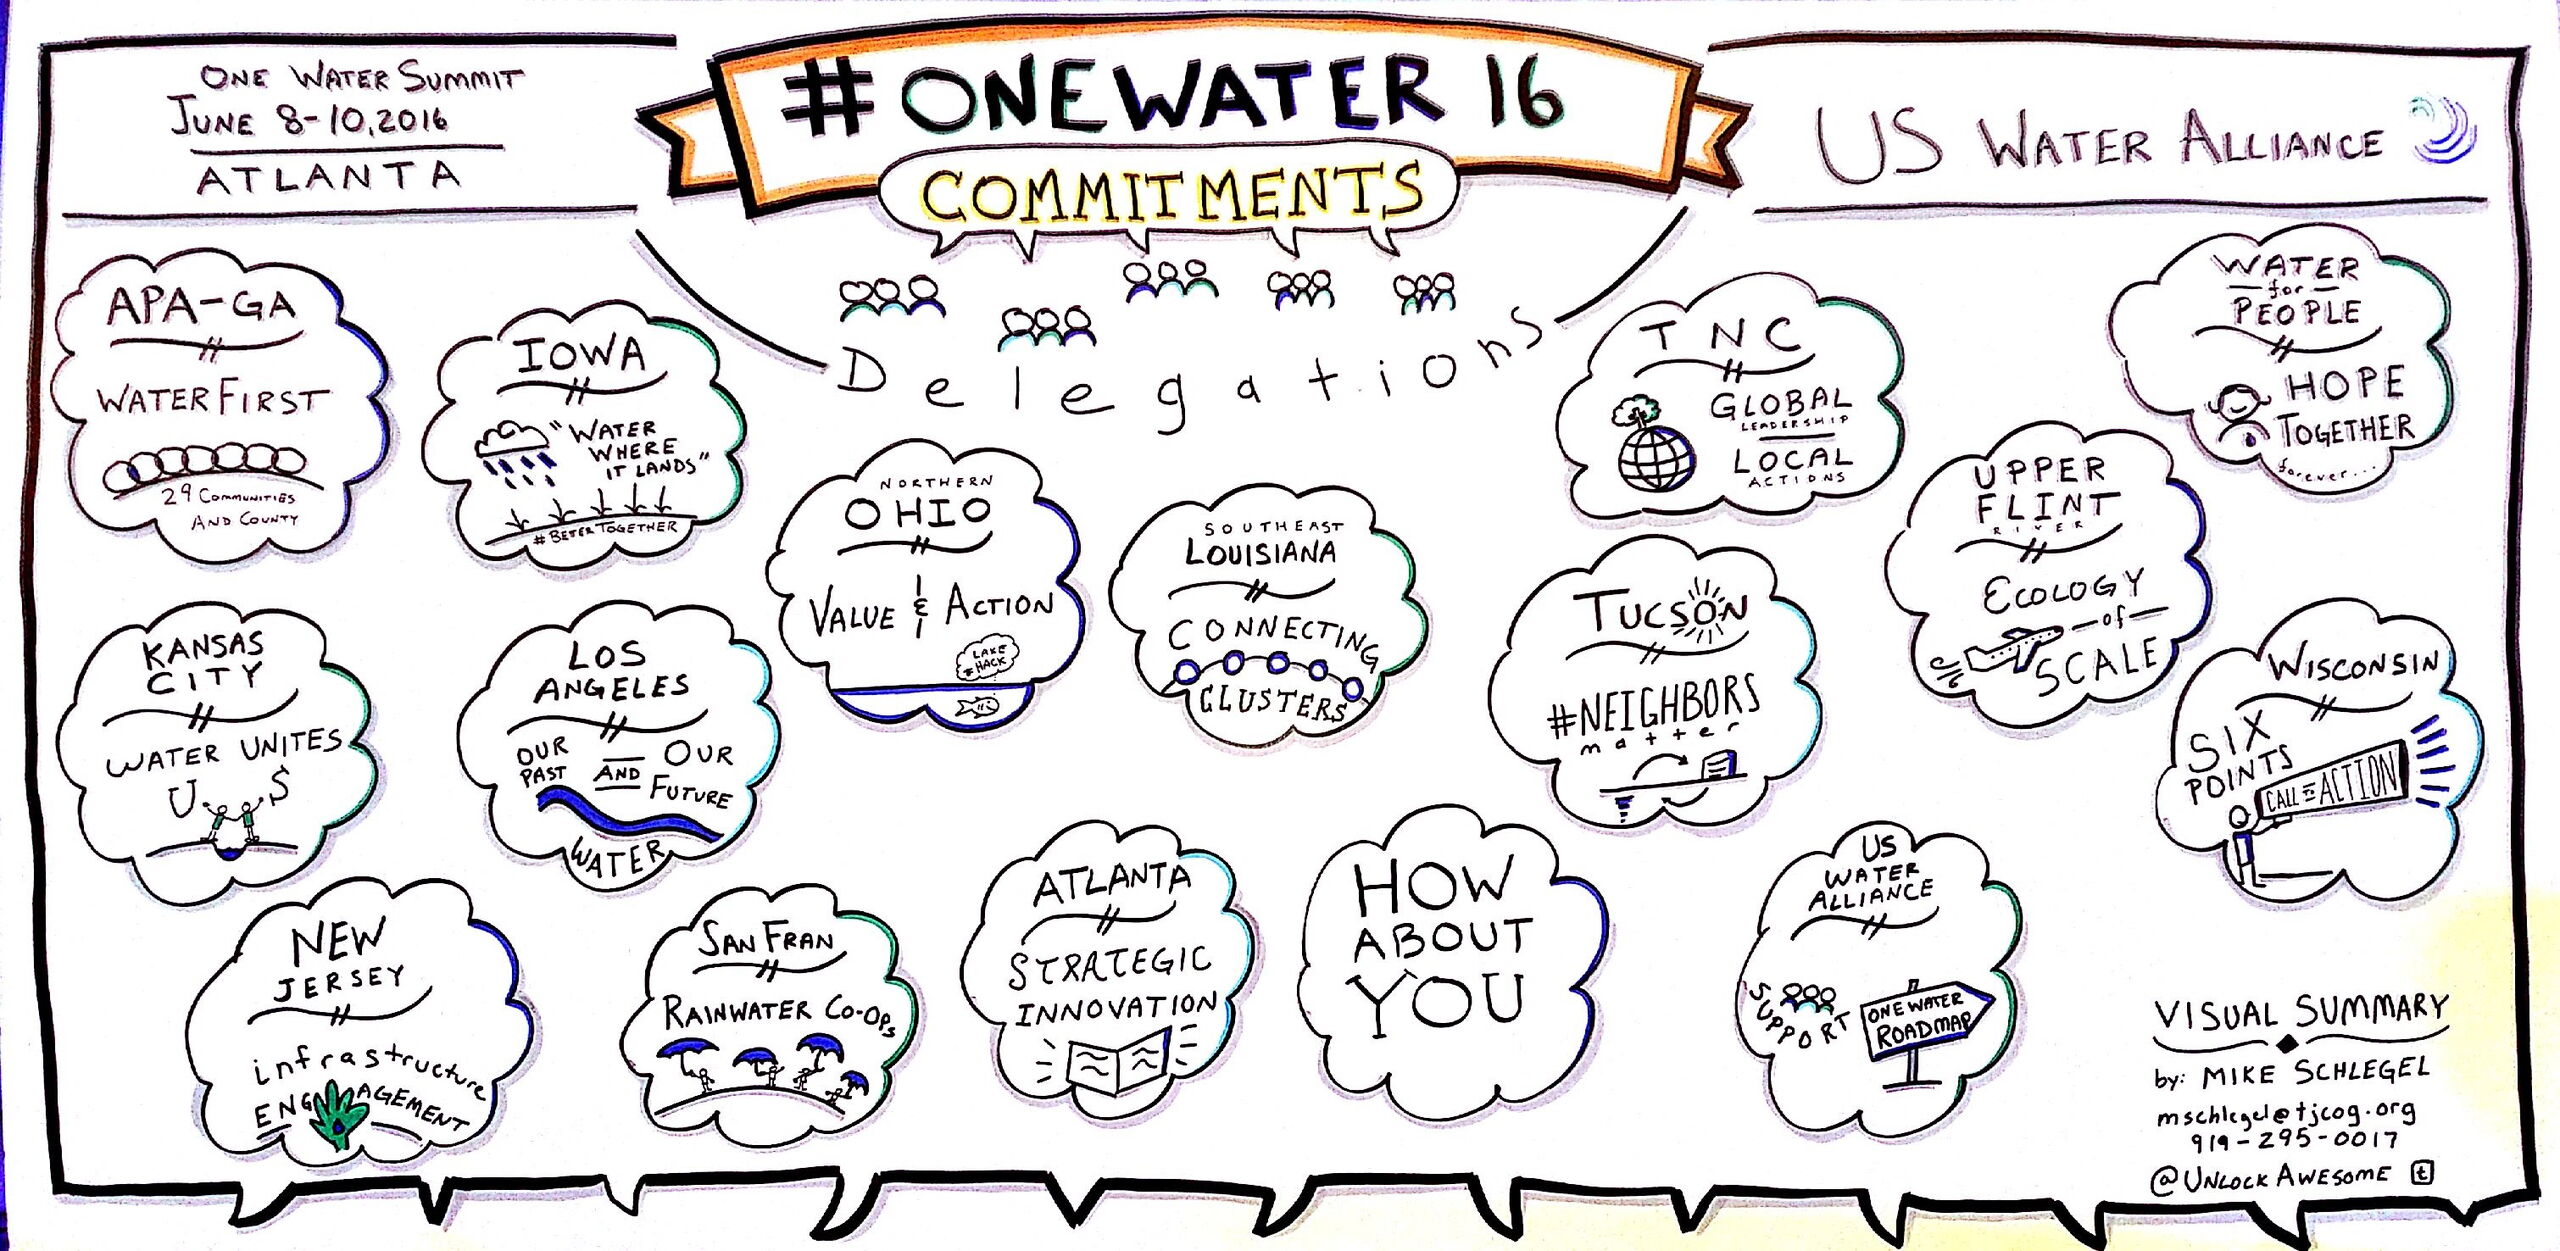 ONE WATER SUMMIT
JUNE 8-10, 2016
ATLANTA
#ONEWATER 16
COMMITMENTS
US WATER ALLIANCE
Delegations
APA-GA
WATER FIRST
29 COMMUNITIES
AND COUNTY
IOWA
"WATER
WHERE
IT LANDS"
#BETERTOGETHER
NORTHERN
OHIO
VALUE & ACTION
LAKE
#HACK
SOUTHEAST
LOUISIANA
CONNECTING
CLUSTERS
TNC
GLOBAL
LEADERSHIP
LOCAL
ACTIONS
WATER
for
PEOPLE
HOPE
TOGETHER
forever...
UPPER
FLINT
RIVER
ECOLOGY
of
SCALE
KANSAS
CITY
WATER UNITES
U $
LOS
ANGELES
OUR
PAST
AND
OUR
FUTURE
WATER
TUCSON
#NEIGHBORS
matter
WISCONSIN
SIX
POINTS
CALL TO ACTION
NEW
JERSEY
infrastructure
ENGAGEMENT
SAN FRAN
RAINWATER CO-OPs
ATLANTA
STRATEGIC
INNOVATION
HOW
ABOUT
YOU
US
WATER
ALLIANCE
SUPPORT
ONE WATER
ROADMAP
VISUAL SUMMARY
by: MIKE SCHLEGEL
mschlegel@tjcog.org
919-295-0017
@UNLOCKAWESOME t